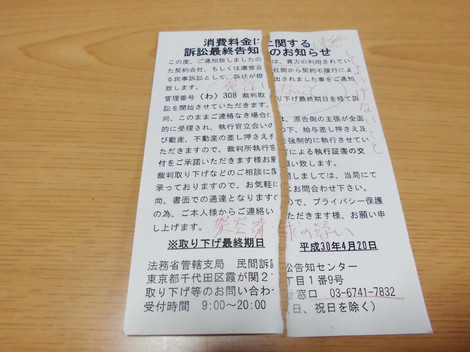 消費料金に関する
訴訟最終告知のお知らせ
この度、ご通知致しましたのは、貴方の利用されてい
た契約会社、もしくは運営会社側から契約不履行によ
る民事訴訟として、訴状が提出されました事をご通知
致します。
管理番号(わ)308 裁判取り下げ最終期日を経て訴
訟を開始させていただきます。
尚、このままご連絡なき場合、原告側の主張が全面
的に受理され、執行官立会いの下、給与差し押え及
び動産、不動産の差し押え 強制的に執行させてい
ただきますので、裁判所執行官による執行証書の交
付をご承諾いただきます様お願い致します。
裁判取り下げなどのご相談に関しましては、当局にて
承っておりますので、お気軽にお問合わせ下さい。
尚、書面での通達となりますので、プライバシー保護
の為、ご本人様からご連絡いただきます様、お願い申
し上げます。
架空請求の疑い
※取り下げ最終期日 平成30年4月20日
法務省管轄支局 民間訴訟告知センター
東京都千代田区霞が関2丁目1番9号
取り下げ等のお問い合わせ窓口 03-6741-7832
受付時間 9:00~20:00 (日、祝日を除く)